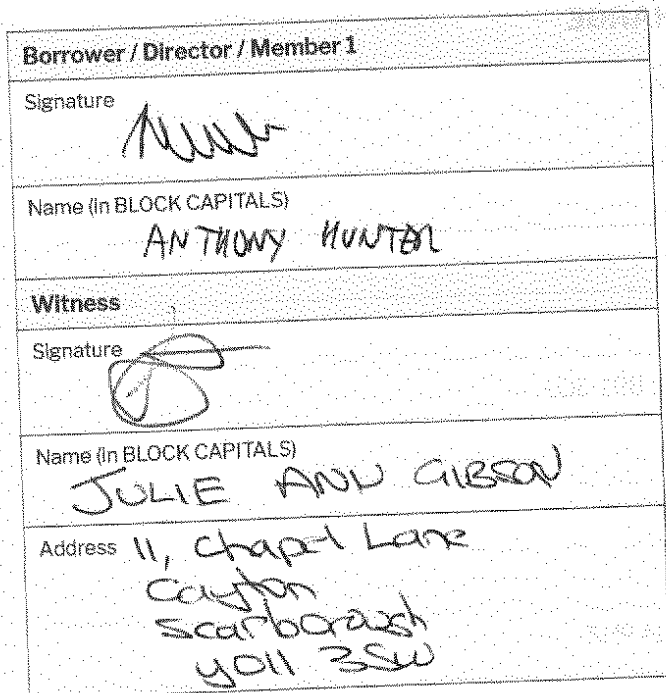 Borrower / Director / Member 1
Signature
Name (in BLOCK CAPITALS)
ANTHONY HUNTER
Witness
Signature
Name (in BLOCK CAPITALS)
JULIE ANN GIBSON
Address 11, Chapel Lane
Cayton
Scarborough
YO11 3SW